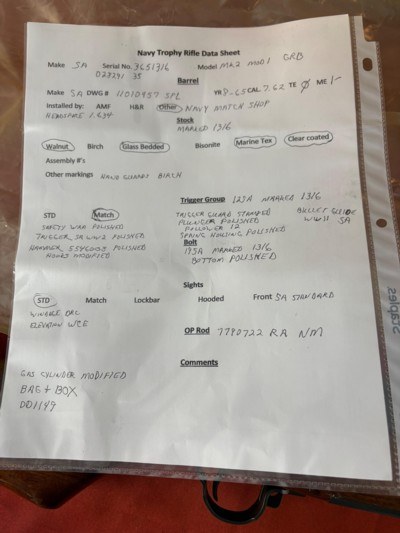 Navy Trophy Rifle Data Sheet
Make SA Serial No. 3651316 Model MK2 MOD1 GRB
D28291 35
Barrel
Make SA DWG # 11010457 SPL YR 8-65 CAL. 7.62 TE Ø ME 1-
Installed by: AMF H&R Other NAVY MATCH SHOP
HEADSPACE 1.634
Stock
MARKED 1316
Walnut Birch Glass Bedded Bisonite Marine Tex Clear coated
Assembly #'s
Other markings HAND GUARD BIRCH
Trigger Group 12SA MARKED 1316
STD Match TRIGGER GUARD STAMPED BULLET GUIDE
SAFETY WRA POLISHED PLUNGER POLISHED WWII SA
TRIGGER SA WW2 POLISHED FOLLOWER 12
HAMMER 5546008 POLISHED SPRING HOUSING POLISHED
HOOKS MODIFIED
Bolt
19SA MARKED 1316
BOTTOM POLISHED
Sights
STD Match Lockbar Hooded Front SA STANDARD
WINDAGE DRC
ELEVATION WCE
OP Rod 7790722 RA NM
Comments
GAS CYLINDER MODIFIED
BAG + BOX
DD1149
Staples